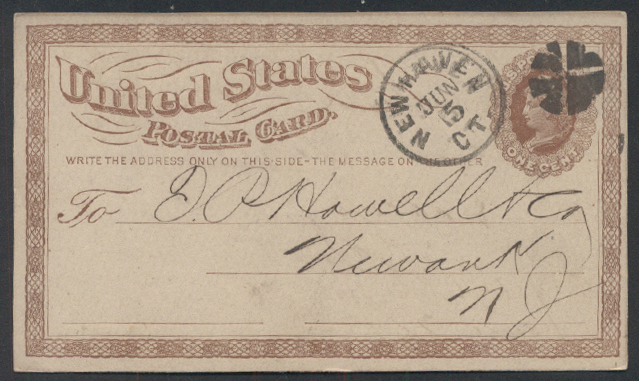 United States
POSTAL CARD.
NEW HAVEN
JUN
15
CT
ONE CENT
WRITE THE ADDRESS ONLY ON THIS SIDE-THE MESSAGE ON THE OTHER
To
Howell & Co
Newark
N J